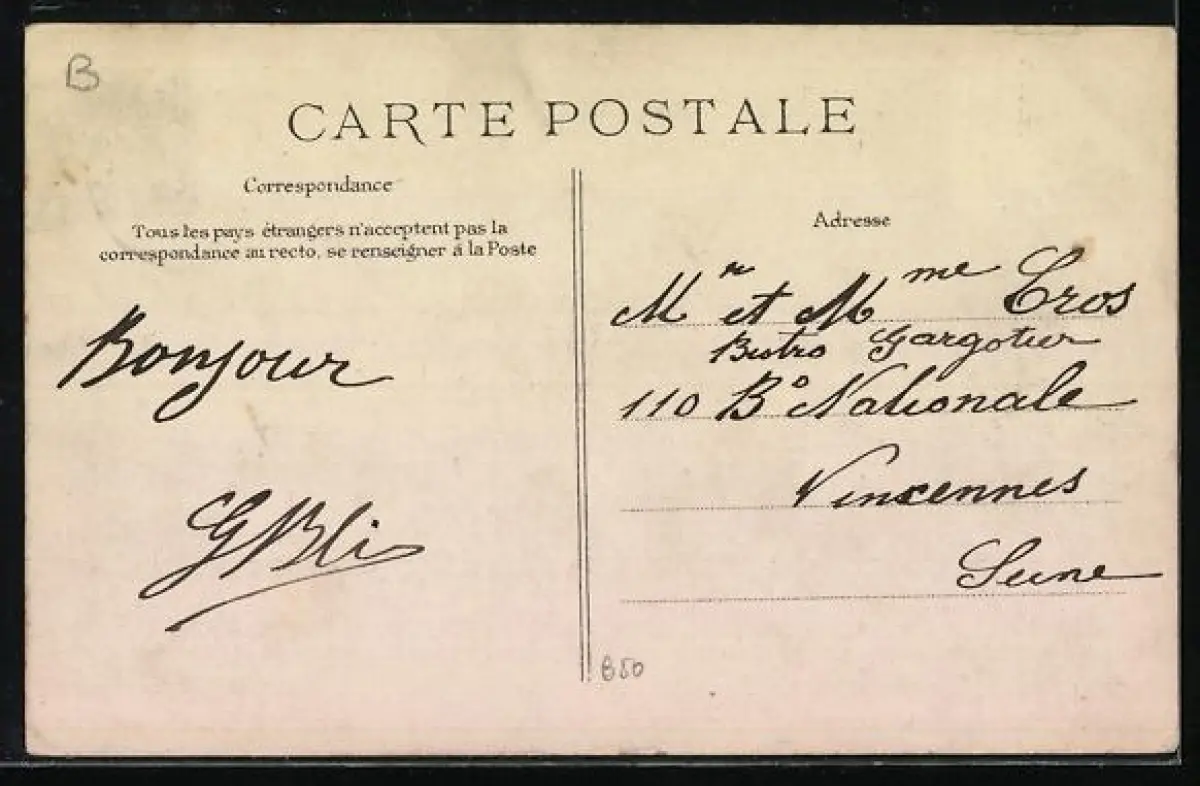 B
CARTE POSTALE
Correspondance
Tous les pays étrangers n'acceptent pas la
correspondance au recto, se renseigner à la Poste
Bonjour
GBli
Adresse
Mr et Mme Cros
Bistro Gargotier
110 Bd Nationale
Vincennes
Seine
B50